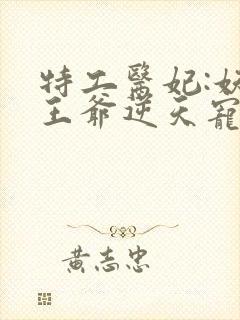 特工醫妃:妖
王爺逆天寵
黃志忠